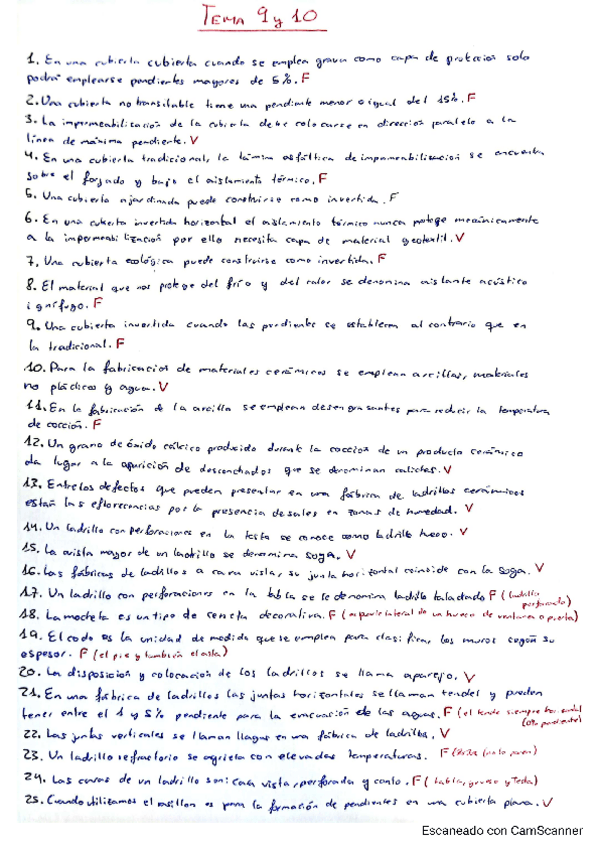 TEMA 9 y 10
1. En una cubierta cubierta cuando se emplea grava como capa de proteccion solo
podrá emplearse pendientes mayores de 5%. F
2. Una cubierta no transitable tiene una pendiente menor o igual del 15%. F
3. La impermeabilización de la cubierta debe colocarse en dirección paralelo a la
línea de máxima pendiente. V
4. En una cubierta tradicional, la lámina asfáltica de impermeabilización se encuentra
sobre el forjado y bajo el aislamiento térmico. F
5. Una cubierta ajardinada puede construirse como invertida. F
6. En una cubierta invertida horizontal el aislamiento térmico nunca protege mecánicamente
a la impermeabilización por ello necesita capa de material geotextil. V
7. Una cubierta ecológica puede construirse como invertida. F
8. El material que nos protege del frío y del calor se denomina aislante acústico
ignífugo. F
9. Una cubierta invertida cuando las pendientes se establecen al contrario que en
la tradicional. F
10. Para la fabricación de materiales cerámicos se emplean arcillas, materiales
no plásticos y agua. V
11. En la fabricación de la arcilla se emplean desengrasantes para reducir la temperatura
de cocción. F
12. Un grano de óxido cálcico producido durante la coccion de un producto cerámico
da lugar a la aparición de desconchados que se denominan caliches. V
13. Entre los defectos que pueden presentar en una fábrica de ladrillos cerámicos
están las eflorescencias por la presencia de sales en zonas de humedad. V
14. Un ladrillo con perforaciones en la testa se conoce como ladrillo hueco. V
15. La arista mayor de un ladrillo se denomina soga. V
16. Las fábricas de ladillos a cara vista, su junta horizontal coincide con la soga. V
17. Un ladrillo con perforaciones en la tabla se le denomina ladrillo taladrado F (ladrillo perforado)
18. La mocheta es un tipo de cenefa decorativa. F (superficie lateral de un hueco de ventana o puerta)
19. El codo es la unidad de medida que se emplea para clasificar, los muros según su
espesor. F (el pie y también el asta)
20. La disposición y colocación de los ladrillos se llama aparejo. V
21. En una fábrica de ladrillos las juntas horizontales se llaman tendel y pueden
tener entre el 1 y 5% pendiente para la evacuación de las aguas. F (el tendel siempre horizontal (0% pendiente)
22. Las juntas verticales se llaman llagas en una fábrica de ladrillos. V
23. Un ladrillo refractorio se agrieta con elevadas temperaturas. F
24. Las caras de un ladrillo son: cara vista, perforada y canto. F (tabla, grueso y testa)
25. Cuando utilizamos el rasillon es para la formación de pendientes en una cubierta plana. V
Escaneado con CamScanner